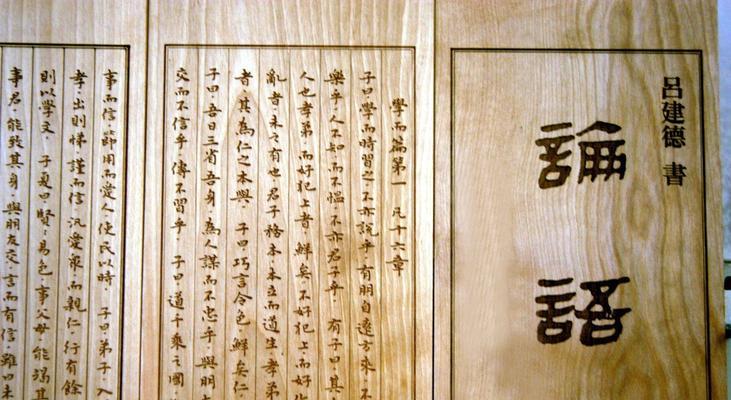 呂建德 書
論語
學而篇第一 凡十六章
子曰。學而時習之。不亦說乎。有朋自遠方來。不
樂乎。人不知。而不慍。不亦君子乎。 有子曰。其
人也孝弟。而好犯上者。鮮矣。不好犯上。而好作
亂者。未之有也。君子務本。本立而道生。孝弟
者。其為仁之本與。 子曰。巧言令色。鮮矣仁。
子曰。吾日三省吾身。為人謀而不忠乎。與朋
交而不信乎。傳不習乎。 子曰。道千乘之國。
事而信。節用而愛人。使民以時。 子曰。弟子。入
孝。出則悌。謹而信。汎愛眾。而親仁。行有餘
則以學文。 子夏曰。賢〻易色。事父母。能竭其
事君。能致其身。與朋友交。言而有信。雖曰未